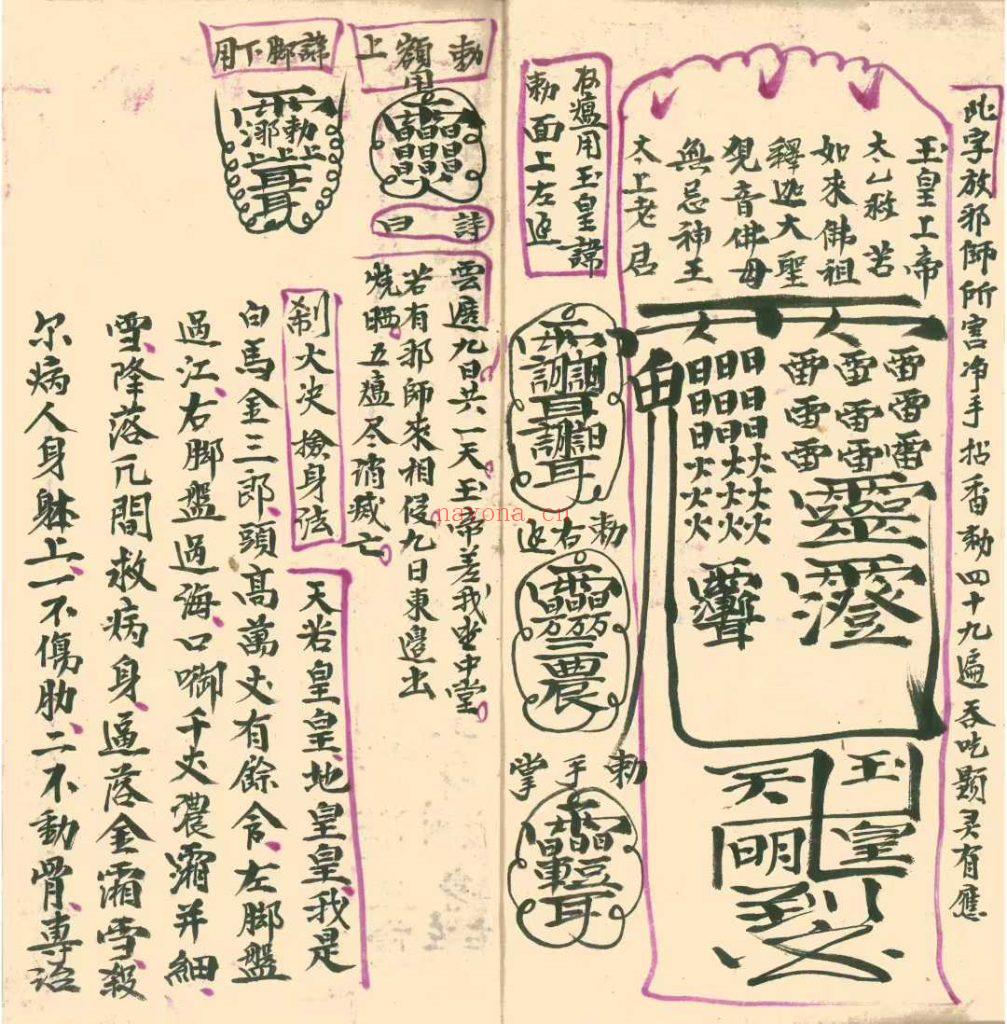 此字放邪師所害净手招香勅四十九遍吞吃顕灵有應
玉皇上帝
太乙救苦
如來佛祖
釋迦大聖
覌音佛母
無忌神王
太上老君
雷雷雷
雷雷雷
雷雷雷
日日日
日日日
日日日
火火火
火火火
火火火
靈
玉皇
天明
瘟用玉皇諱
勅面上左边
勅右边
勅手掌
勅額用上
諱脚下用
詩曰
雲遮九日共一天玉帝差我坐中堂
若有邪師來相侵九日東邉出
燒晒五瘟尽消滅亡
制火决撿身法
天若皇皇地皇皇我是
白馬金三郎頭髙萬丈有餘令左脚盤
過江右脚盤過海口啣千丈濃霜并細
雪降落兀間救病身逼落金霜雪殺
尔病人身躰上一不傷肋二不動骨専治
nayona.cn